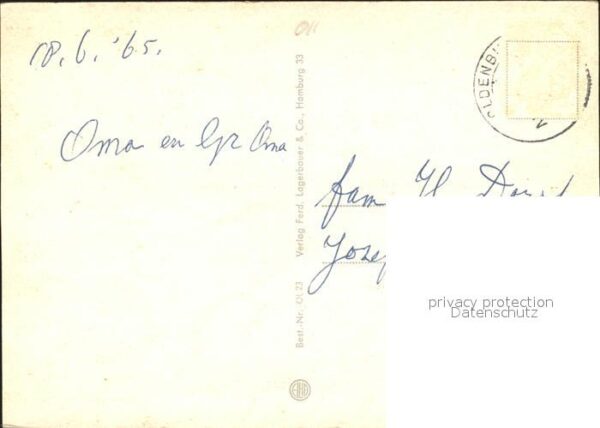 18.6.'65.
Oma en Opa Oma
fam H.
Josep
Best.-Nr. Ol 23 Verlag Ferd. Lagerbauer & Co., Hamburg 33
OLDENB
privacy protection
Datenschutz